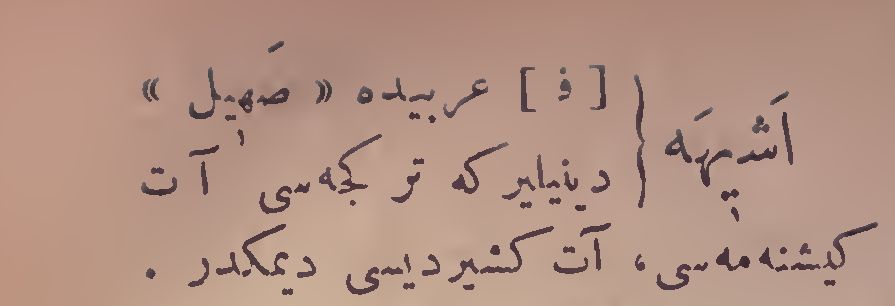 اَشْیهَه } [ ف ] عربیده « صَهِیل »
دینیلیر كه تركجه‌سی آت
كیشنه‌مه‌سی ، آت كشیردیسی دیمكدر .